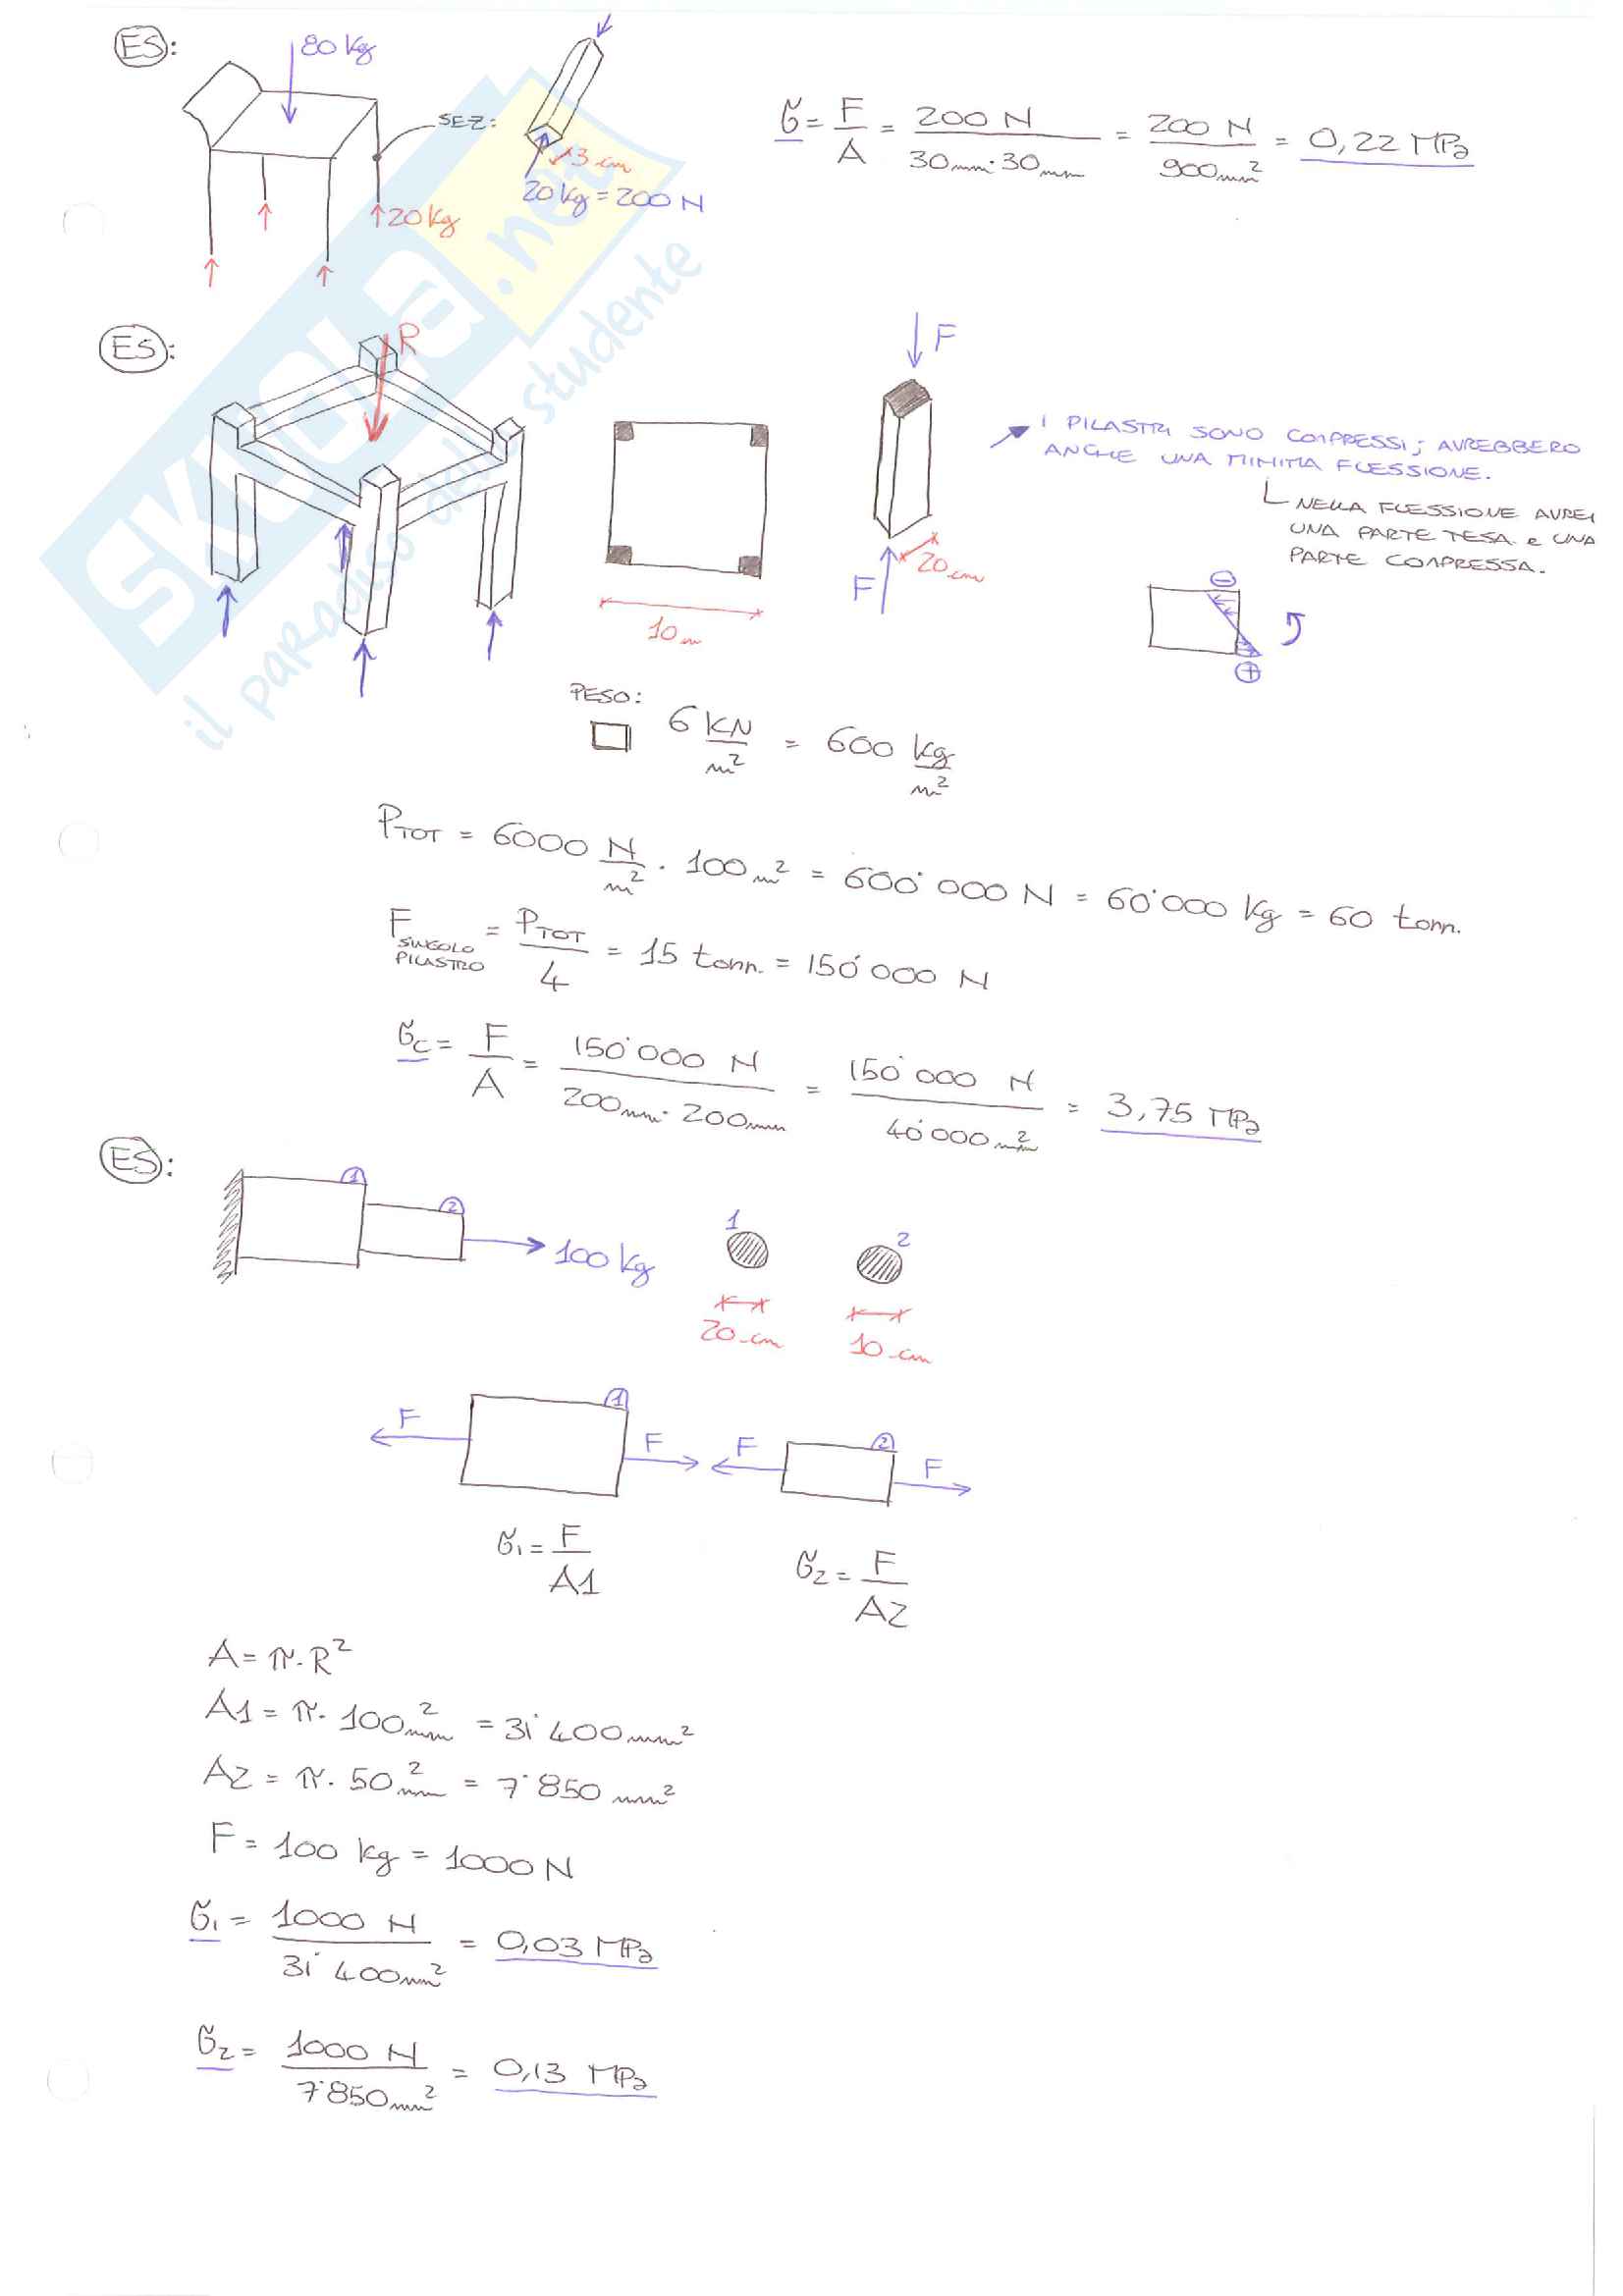 ES:
80 Kg
SEZ:
3 cm
20 Kg = 200 N
20 Kg
σ = F/A = 200 N / 30mm · 30mm = 200 N / 900mm² = 0,22 MPa
SKUOLA.net
il paradiso dello studente
ES:
R
F
I PILASTRI SONO COMPRESSI; AVREBBERO
ANCHE UNA MINIMA FLESSIONE.
NELLA FLESSIONE AVREI
UNA PARTE TESA e UNA
PARTE COMPRESSA.
F
20 cm
10 m
-
+
PESO:
6 KN/m² = 600 Kg/m²
PTOT = 6000 N/m² · 100 m² = 600'000 N = 60'000 Kg = 60 tonn.
F SINGOLO PILASTRO = PTOT/4 = 15 tonn. = 150'000 N
σc = F/A = 150'000 N / 200mm · 200mm = 150'000 N / 40'000 mm² = 3,75 MPa
ES:
1
2
100 Kg
1
2
20 cm
10 cm
F
1
F
F
2
F
σ1 = F/A1
σ2 = F/A2
A = π · R²
A1 = π · 100mm² = 31'400mm²
A2 = π · 50mm² = 7'850 mm²
F = 100 Kg = 1000 N
σ1 = 1000 N / 31'400mm² = 0,03 MPa
σ2 = 1000 N / 7'850mm² = 0,13 MPa